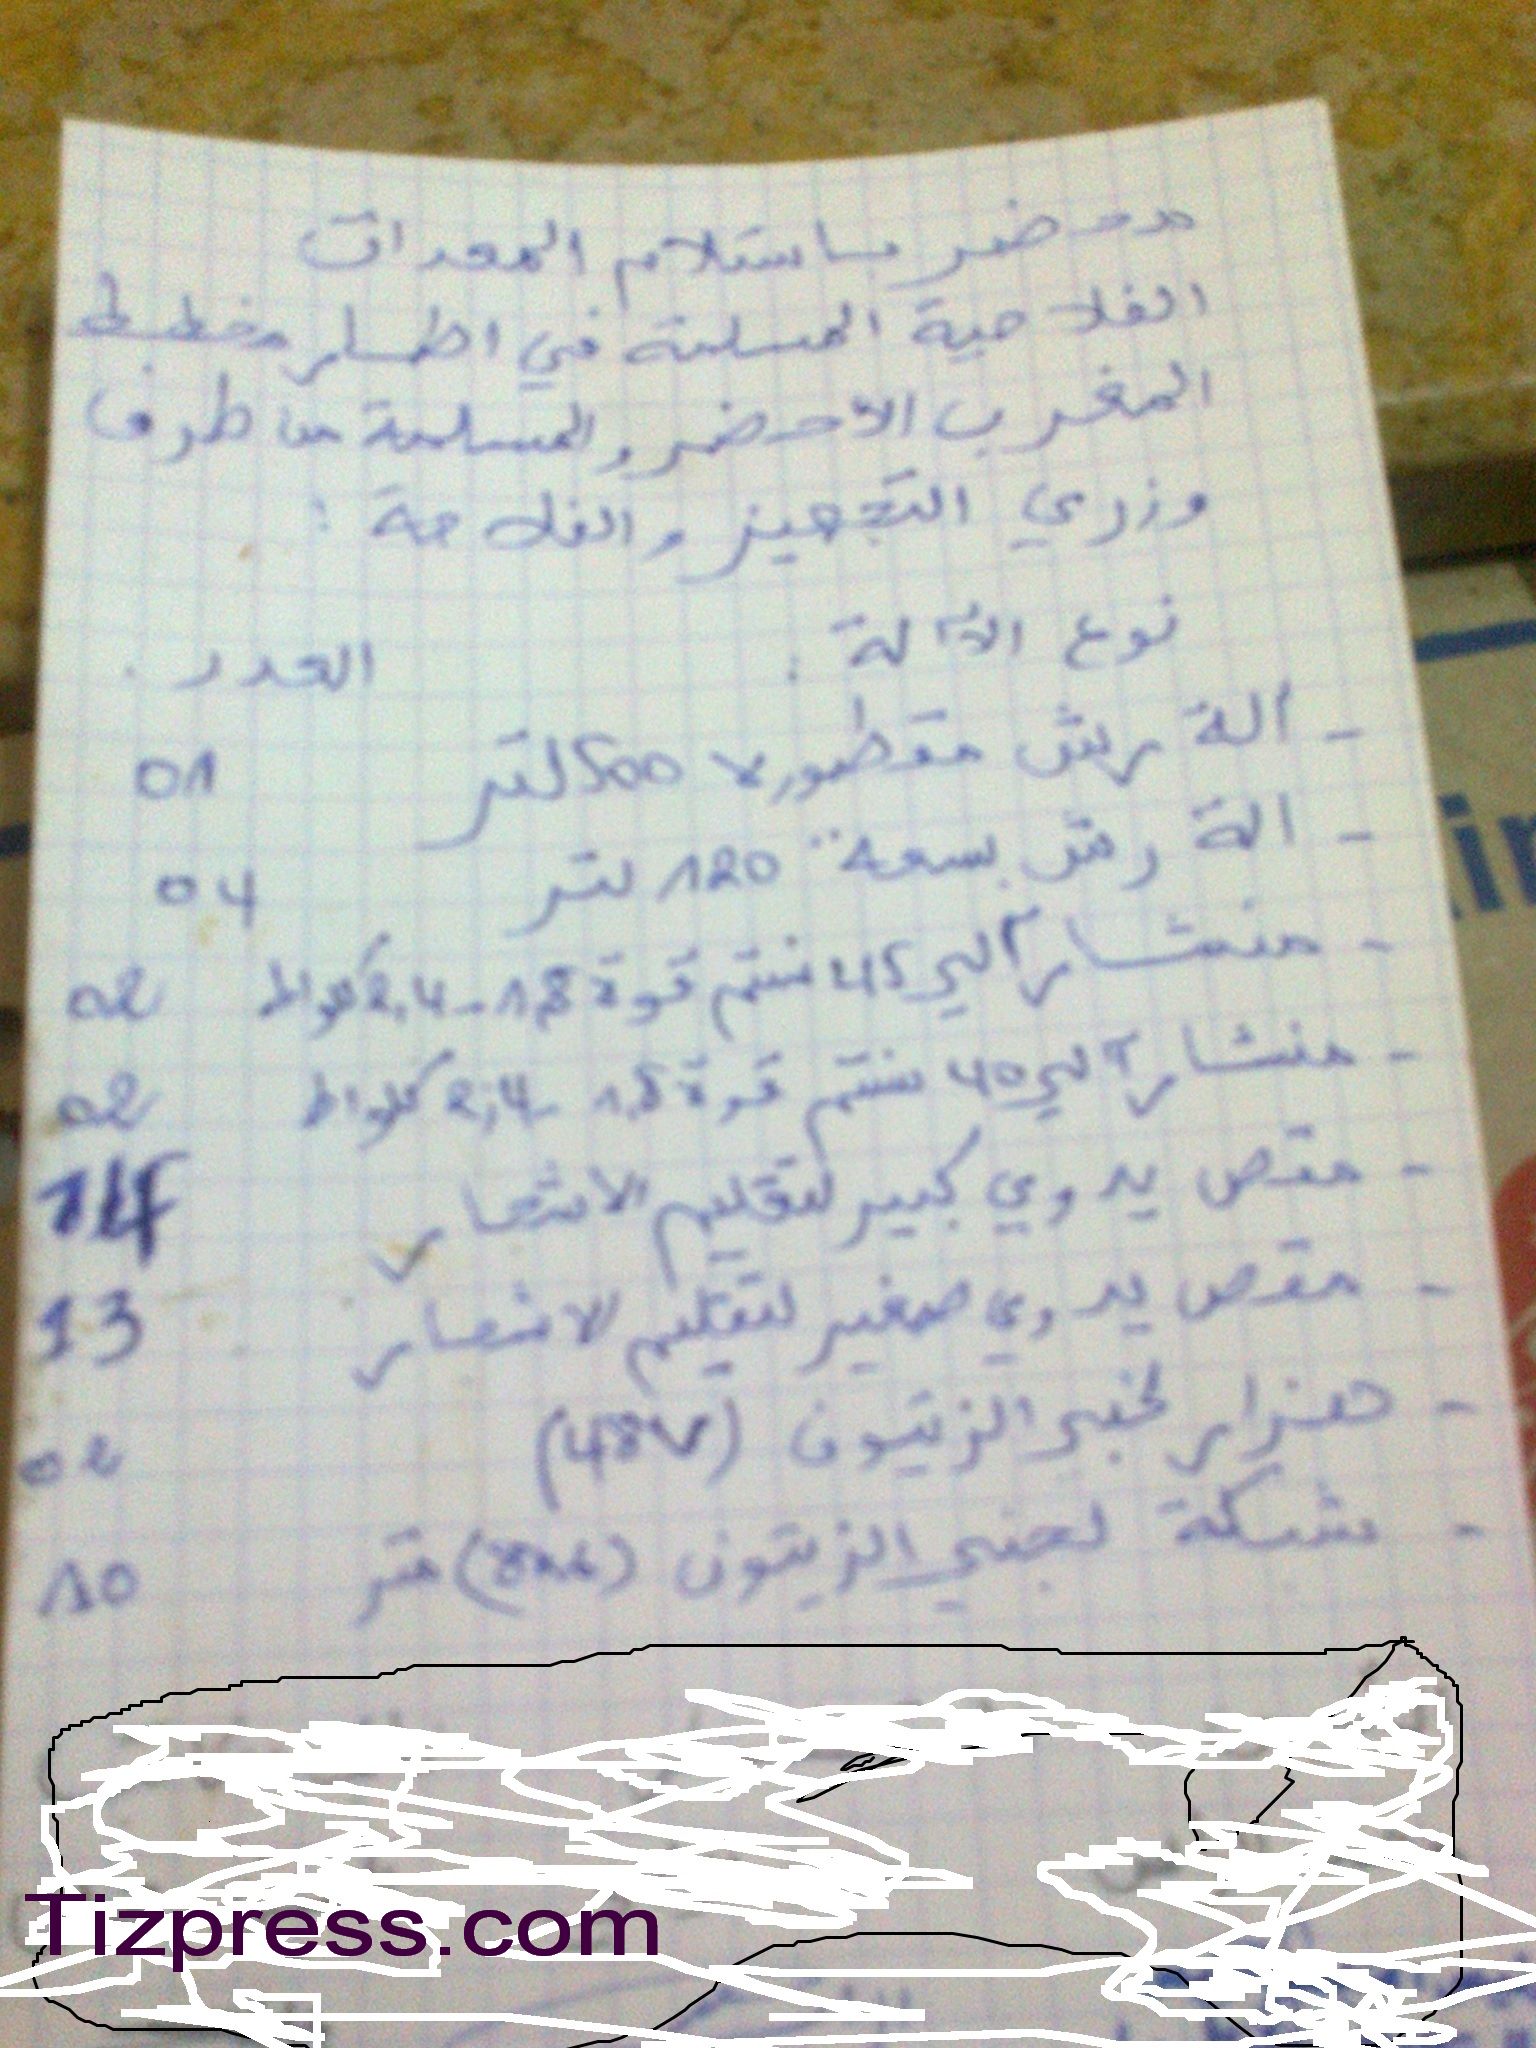 محضر باستلام المعدات
الفلاحية المسلمة في اطار مخطط
المغرب الأخضر والمسلمة من طرف
وزري التجهيز والفلاحة :
نوع الآلة : العدد .
- آلة رش مقطورة 500 لتر 01
- الة رش بسعة 120 لتر 04
- منشار آلي 45 سنتم قوة 1,8 - 2,4 كلواط 02
- منشار آلي 40 سنتم قوة 1,8 - 2,4 كلواط 02
- مقص يدوي كبير لتقليم الاشجار 14
- مقص يدوي صغير لتقليم الاشجار 13
- هزاز لجني الزيتون (48V) 02
- شبكة لجني الزيتون متر 10
Tizpress.com